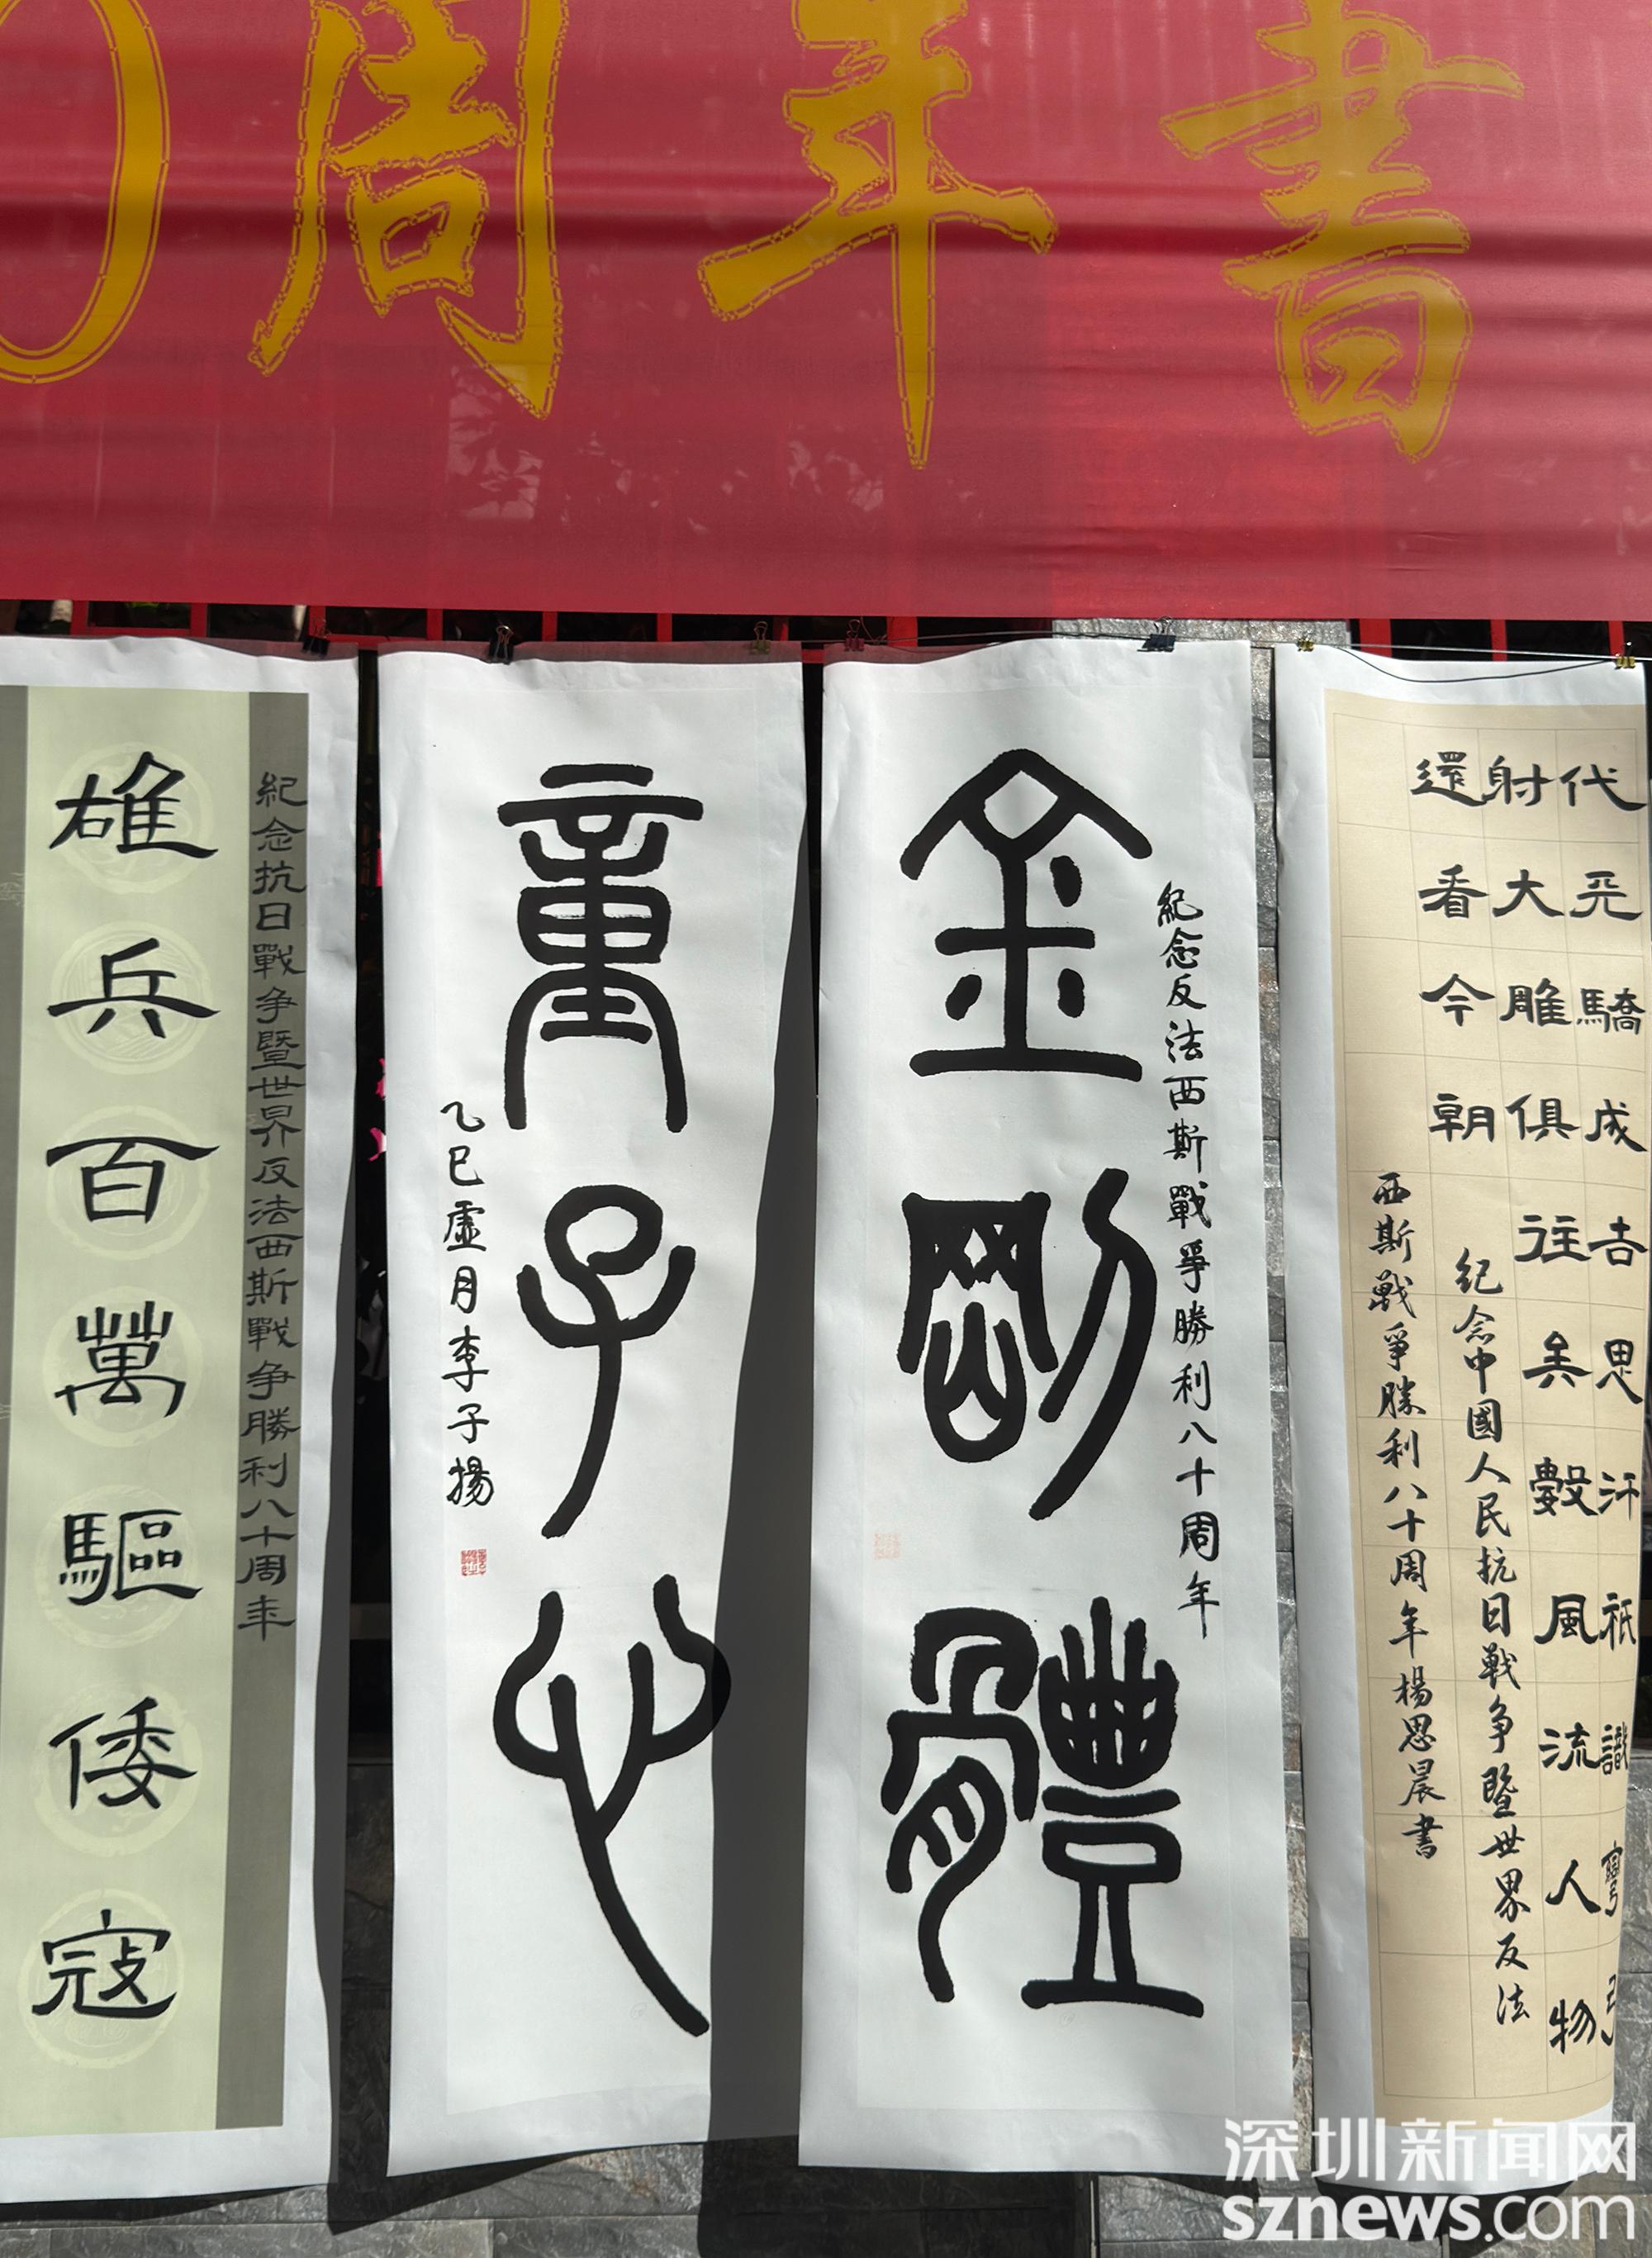 0周年書
代天驕成吉思汗祇識彎弓
射大雕俱往矣數風流人物
還看今朝
紀念中國人民抗日戦争暨世界反法
西斯戦爭勝利八十周年楊思晨書
紀念反法西斯戰爭勝利八十周年
金剛體
童子心
乙巳虛月李子揚
紀念抗日戰争暨世界反法西斯戰争勝利八十周年
雄兵百萬驅倭寇
深圳新闻网
sznews.com